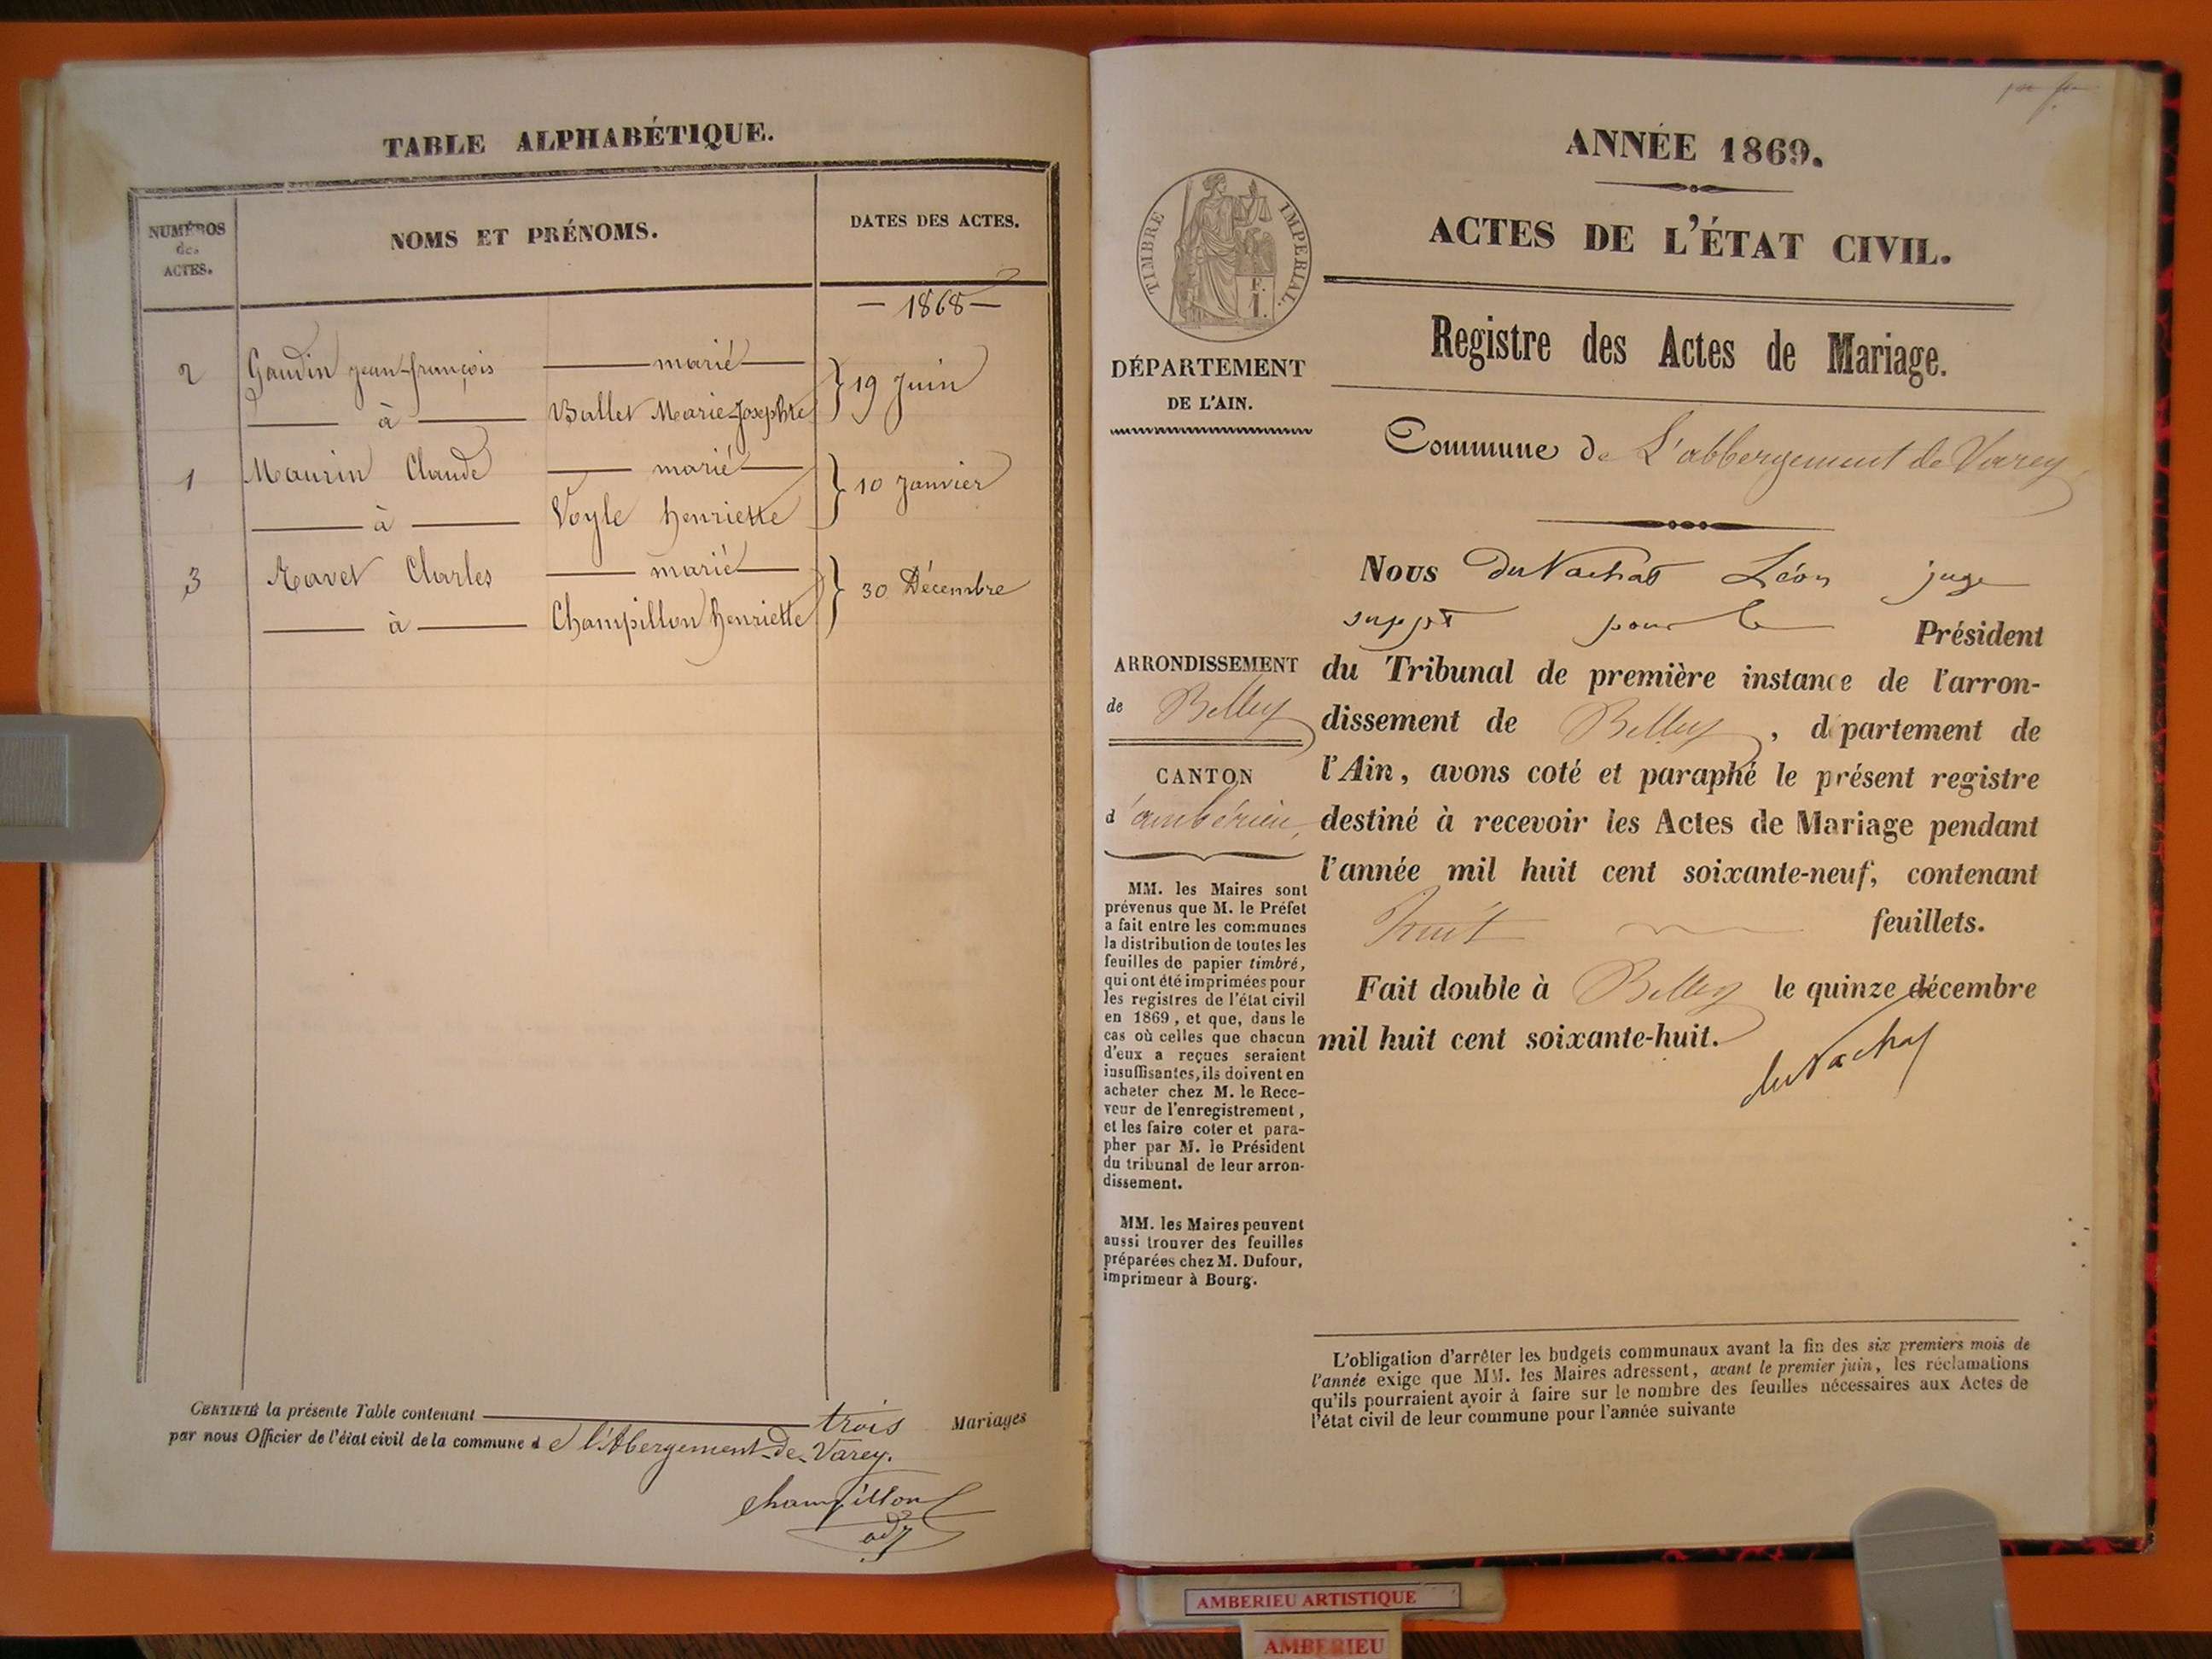 TABLE ALPHABÉTIQUE.
NUMÉROS
des
ACTES.
NOMS ET PRÉNOMS.
DATES DES ACTES.
— 1868 —
2 Gaudin jean-françois — marié —
— à — Ballet Marie-Josephte } 19 Juin
1 Maurin Claude — marié —
— à — Voyle henriette } 10 Janvier
3 Ravet Charles — marié —
— à — Champillon henriette } 30 Décembre
CERTIFIÉ la présente Table contenant — trois Mariages
par nous Officier de l'état civil de la commune de l'Abergement-de-Varey.
Champillon
adj
ANNÉE 1869.
ACTES DE L'ÉTAT CIVIL.
TIMBRE IMPERIAL.
F.
1.
Registre des Actes de Mariage.
DÉPARTEMENT
DE L'AIN.
Commune de L'abbergement de Varey
Nous DuVachat Léon juge
suppt pour le Président
du Tribunal de première instance de l'arron-
dissement de Belley, département de
l'Ain, avons coté et paraphé le présent registre
destiné à recevoir les Actes de Mariage pendant
l'année mil huit cent soixante-neuf, contenant
huit feuillets.
Fait double à Belley le quinze décembre
mil huit cent soixante-huit.
duVachat
ARRONDISSEMENT
de Belley
CANTON
d'ambérieu,
MM. les Maires sont
prévenus que M. le Préfet
a fait entre les communes
la distribution de toutes les
feuilles de papier timbré,
qui ont été imprimées pour
les registres de l'état civil
en 1869, et que, dans le
cas où celles que chacun
d'eux a reçues seraient
insuffisantes, ils doivent en
acheter chez M. le Rece-
veur de l'enregistrement,
et les faire coter et para-
pher par M. le Président
du tribunal de leur arron-
dissement.
MM. les Maires peuvent
aussi trouver des feuilles
préparées chez M. Dufour,
imprimeur à Bourg.
L'obligation d'arrêter les budgets communaux avant la fin des six premiers mois de
l'année exige que MM. les Maires adressent, avant le premier juin, les réclamations
qu'ils pourraient avoir à faire sur le nombre des feuilles nécessaires aux Actes de
l'état civil de leur commune pour l'année suivante
AMBERIEU ARTISTIQUE
AMBERIEU